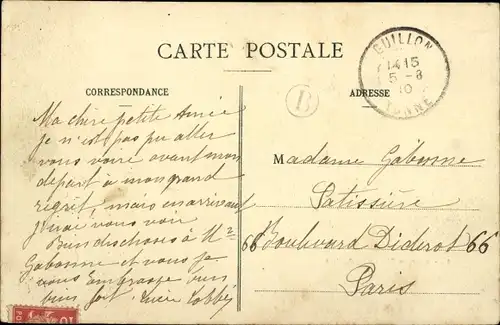 CARTE POSTALE
CORRESPONDANCE
ADRESSE
GUILLON
14 15
5-8
10
YONNE
B
Ma chère petite Aimée
je n'ai pas pu aller
vous voir avant mon
départ à mon grand
regret, mais en arrivant
j'irai vous voir
Bien des choses à Mme
Gabonne et vous je
vous embrasse bien
bien fort.
Madame Gabonne
Patissière
66 Boulevard Diderot 66
Paris
10